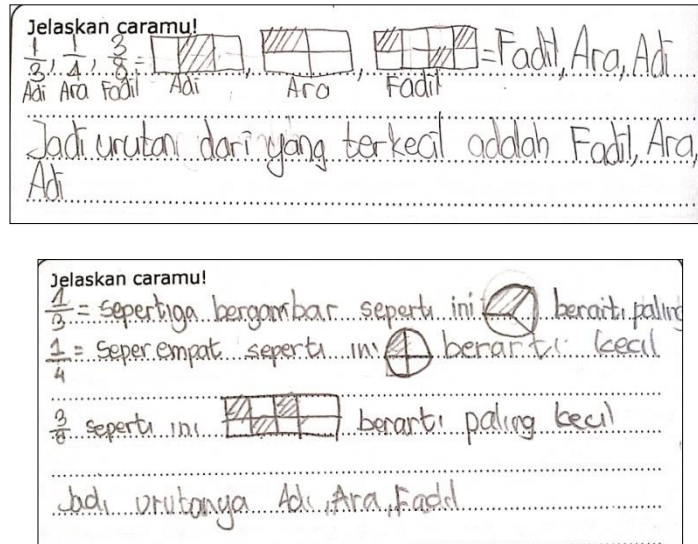 Jelaskan caramu!
1/3, 1/4, 3/8 = , , = Fadil, Ara, Adi
Adi Ara Fadil Adi Ara Fadil
Jadi urutan dari yang terkecil adalah Fadil, Ara,
Adi
Jelaskan caramu!
1/3 = sepertiga bergambar seperti ini berarti paling
1/4 = seperempat seperti ini berarti kecil
3/8 seperti ini berarti paling kecil
Jadi urutanya Adi, Ara, Fadil